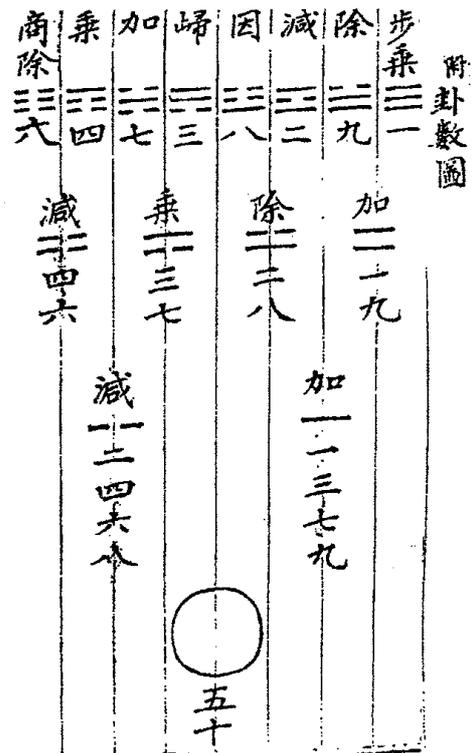 附卦數圖
步乘 ☰ 一
除 ☱ 九
減 ☲ 二
因 ☳ 八
歸 ☴ 三
加 ☵ 七
乘 ☶ 四
商除 ☷ 六
加 ⚌ 一九
除 ⚍ 二八
乘 ⚎ 三七
減 ⚏ 四六
加 ⚊ 一三七九
減 ⚋ 二四六八
五十